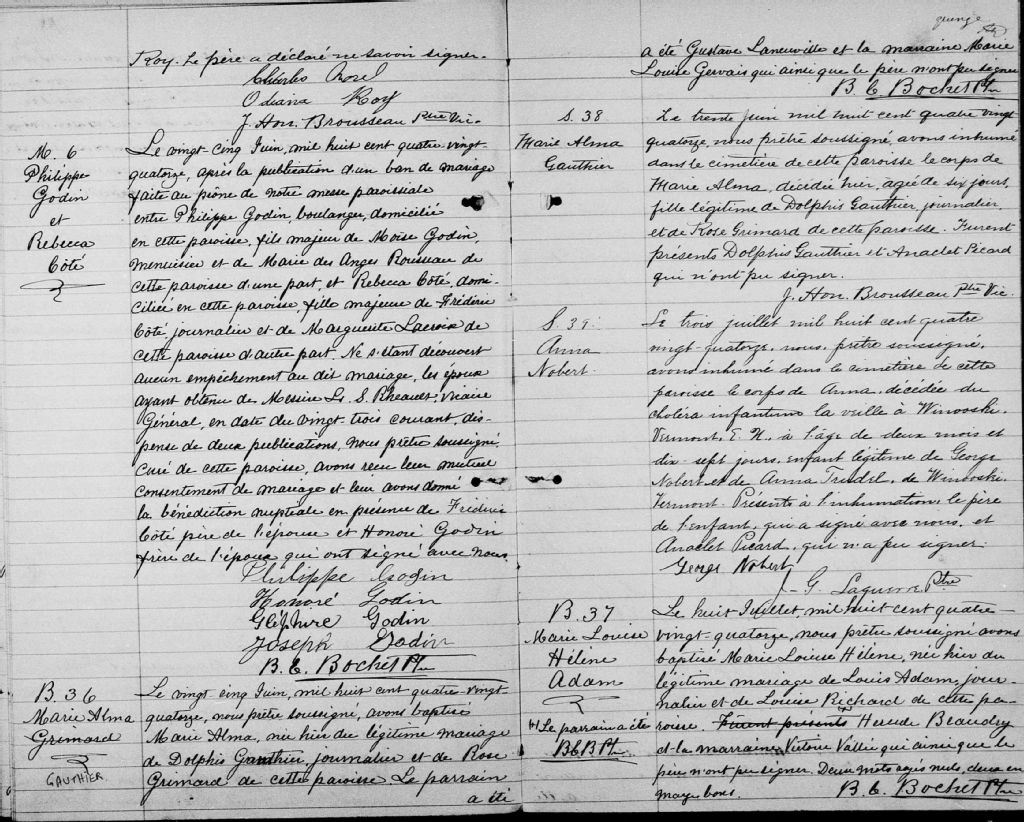 Roy. Le père a déclaré ne savoir signer.
Charles Rosel
Odiana Roy
J. Hon. Brousseau Ptre Vic.
M. 6
Philippe
Godin
et
Rebecca
Côté
Le vingt-cinq Juin, mil huit cent quatre vingt-
quatorze, après la publication d'un ban de mariage
faite au prône de notre messe paroissiale
entre Philippe Godin, boulanger, domicilié
en cette paroisse, fils majeur de Moïse Godin,
menuisier et de Marie des Anges Rousseau de
cette paroisse d'une part, et Rebecca Côté, domi-
ciliée en cette paroisse, fille majeure de Frédéric
Côté, journalier et de Marguerite Lacroix de
cette paroisse d'autre part. Ne s'étant découvert
aucun empêchement au dit mariage, les époux
ayant obtenu de Messire Ls. S. Rheault, Vicaire
Général, en date du vingt-trois courant, dis-
pense de deux publications, nous prêtre soussigné,
curé de cette paroisse, avons reçu leur mutuel
consentement de mariage et leur avons donné
la bénédiction nuptiale en présence de Frédéric
Côté père de l'épouse et Honoré Godin
frère de l'époux qui ont signé avec nous.
Philippe Godin
Honoré Godin
Godin
Joseph Godin
B. C. Bochet Ptre
B 36
Marie Alma
Grimard
GAUTHIER
Le vingt-cinq Juin, mil huit cent quatre-vingt-
quatorze, nous prêtre soussigné, avons baptisé
Marie Alma, née hier du légitime mariage
de Dolphis Gauthier, journalier et de Rose
Grimard de cette paroisse. Le parrain
a été
a été Gustave Laneuville et la marraine Marie
Louise Gervais qui ainsi que le père n'ont pu signer
B. C. Bochet Ptre
S. 38
Marie Alma
Gauthier
Le trente juin mil huit cent quatre vingt
quatorze, nous prêtre soussigné, avons inhumé
dans le cimetière de cette paroisse le corps de
Marie Alma, décédée hier, agée de six jours,
fille légitime de Dolphis Gauthier, journalier,
et de Rose Grimard de cette paroisse. Furent
présents Dolphis Gauthier et Anaclet Picard
qui n'ont pu signer.
J. Hon. Brousseau Ptre Vic.
S. 39.
Anna
Nobert.
Le trois juillet mil huit cent quatre
vingt-quatorze, nous, prêtre soussigné,
avons inhumé dans le cimetière de cette
paroisse le corps de Anna, décédée du
choléra infantum la veille à Winooski,
Vermont, E. U., à l'âge de deux mois et
dix-sept jours, enfant légitime de George
Nobert et de Anna Trudel, de Winooski,
Vermont. Présents à l'inhumation: le père
de l'enfant, qui a signé avec nous, et
Anaclet Picard, qui n'a pu signer.
George Nobert
Ptre
B. 37
Marie Louise
Hélène
Adam
Le parrain a été
B C B Ptre
Le huit Juillet, mil huit cent quatre-
vingt-quatorze, nous prêtre soussigné avons
baptisé Marie Louise Hélène, née hier du
légitime mariage de Louis Adam, jour-
nalier et de Louise Richard de cette pa-
roisse. Furent présents Beaudry
et la marraine Victoire Vallée qui ainsi que le
père n'ont pu signer. Deux mots nuls, deux en
marge bons. B. C. Bochet Ptre